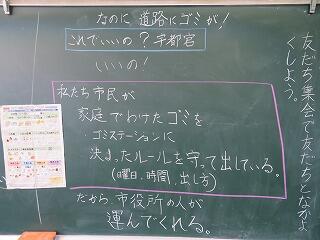 なのに 道路にゴミが!
これでいいの?宇都宮
いいの!
私たち市民が
家庭でわけたゴミを
ゴミステーションに
決まったルールを守って出している。
(曜日、時間、出し方)
だから、市役所の人が
運んでくれる。
友だち集会で友だちとなかよ
くしよう。